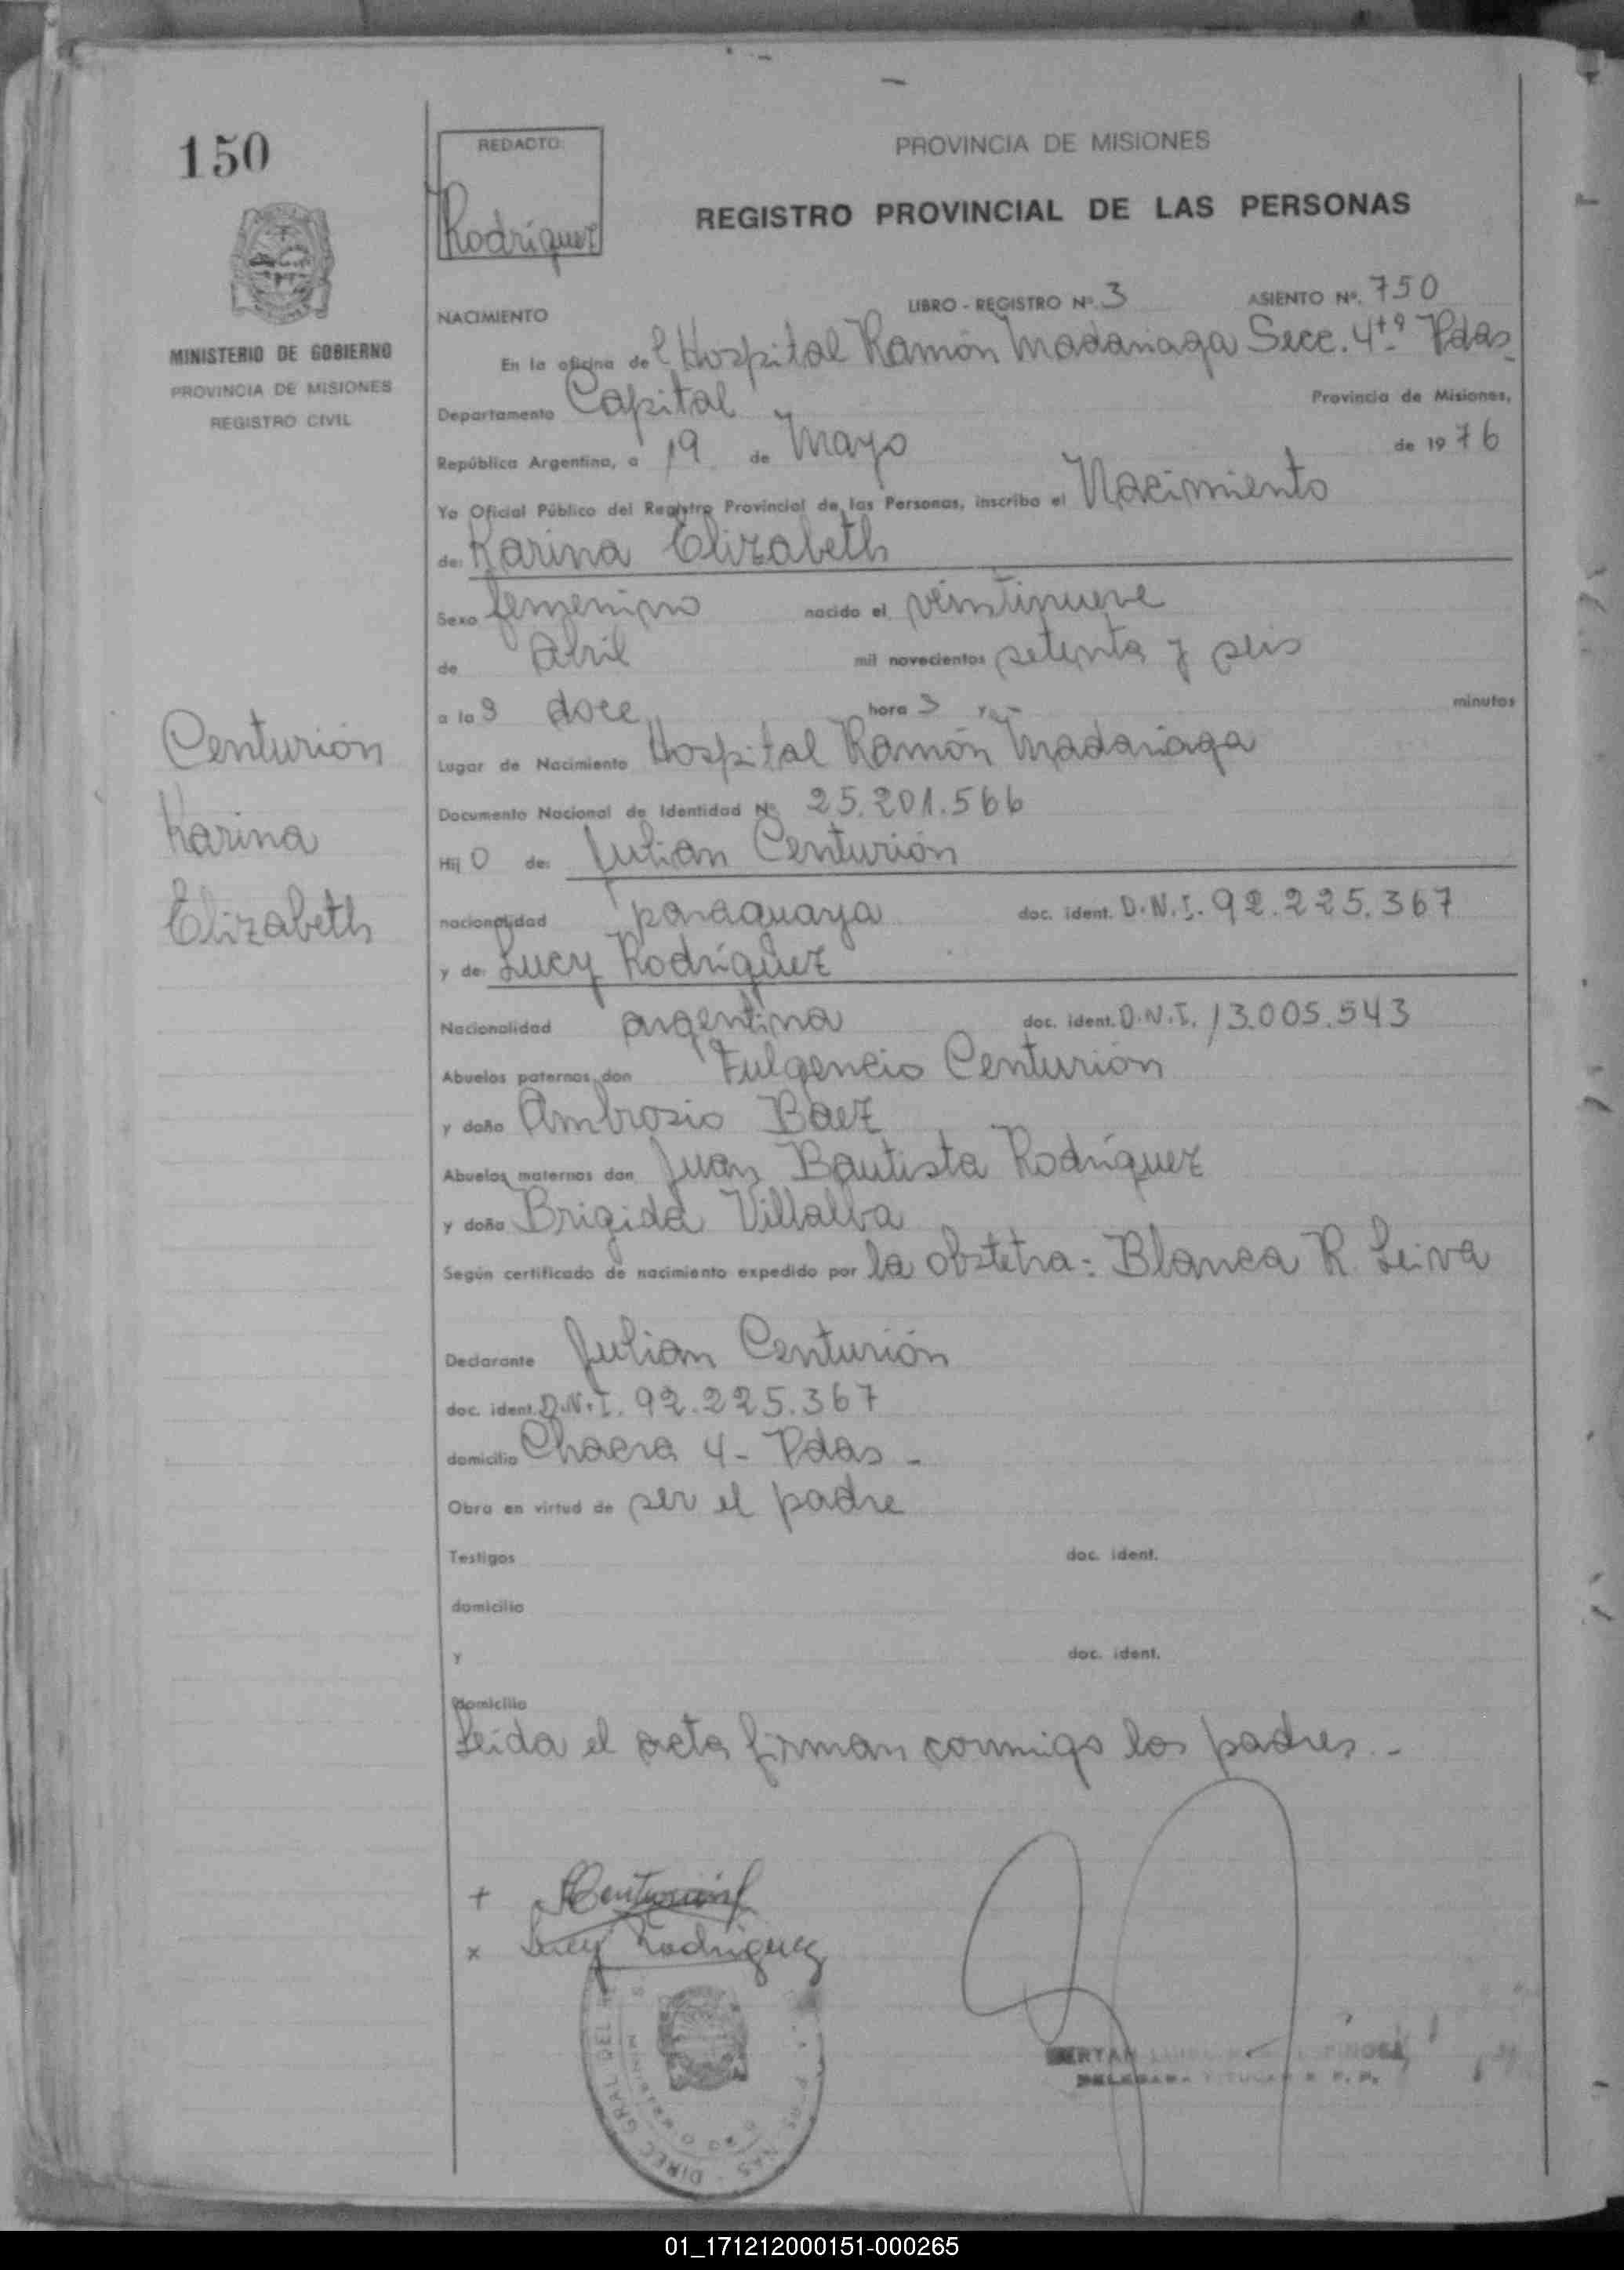 150
REDACTO:
Rodríguez
PROVINCIA DE MISIONES
REGISTRO PROVINCIAL DE LAS PERSONAS
MINISTERIO DE GOBIERNO
PROVINCIA DE MISIONES
REGISTRO CIVIL
NACIMIENTO LIBRO - REGISTRO Nº. 3 ASIENTO Nº. 750
En la oficina de l Hospital Ramón Madariaga Secc. 4ta Pdas
Departamento Capital Provincia de Misiones,
República Argentina, a 19 de Mayo de 1976
Yo Oficial Público del Registro Provincial de las Personas, inscribo el Nacimiento
de: Karina Elizabeth
Sexo femenino nacido el veintinueve
de Abril mil novecientos setenta y seis
a las doce horas y - minutos
Lugar de Nacimiento Hospital Ramón Madariaga
Documento Nacional de Identidad Nº 25.201.566
Hij o de: Julian Centurión
nacionalidad paraguaya doc. ident. D.N.I. 92.225.367
y de: Lucy Rodríguez
Nacionalidad argentina doc. ident. D.N.I. 13.005.543
Abuelos paternos don Fulgencio Centurión
y doña Ambrosio Baez
Abuelos maternos don Juan Bautista Rodríguez
y doña Brigida Villalba
Según certificado de nacimiento expedido por la obstetra: Blanca R. Leiva
Declarante Julian Centurión
doc. ident. D.N.I. 92.225.367
domicilio Chacra 4 - Pdas -
Obra en virtud de ser el padre
Testigos doc. ident.
domicilio
y doc. ident.
domicilio
Leida el acta firman conmigo los padres. -
Centurión
Karina
Elizabeth
+ Centurión
x Lucy Rodriguez
DIREC. GRAL. DEL
01_171212000151-000265